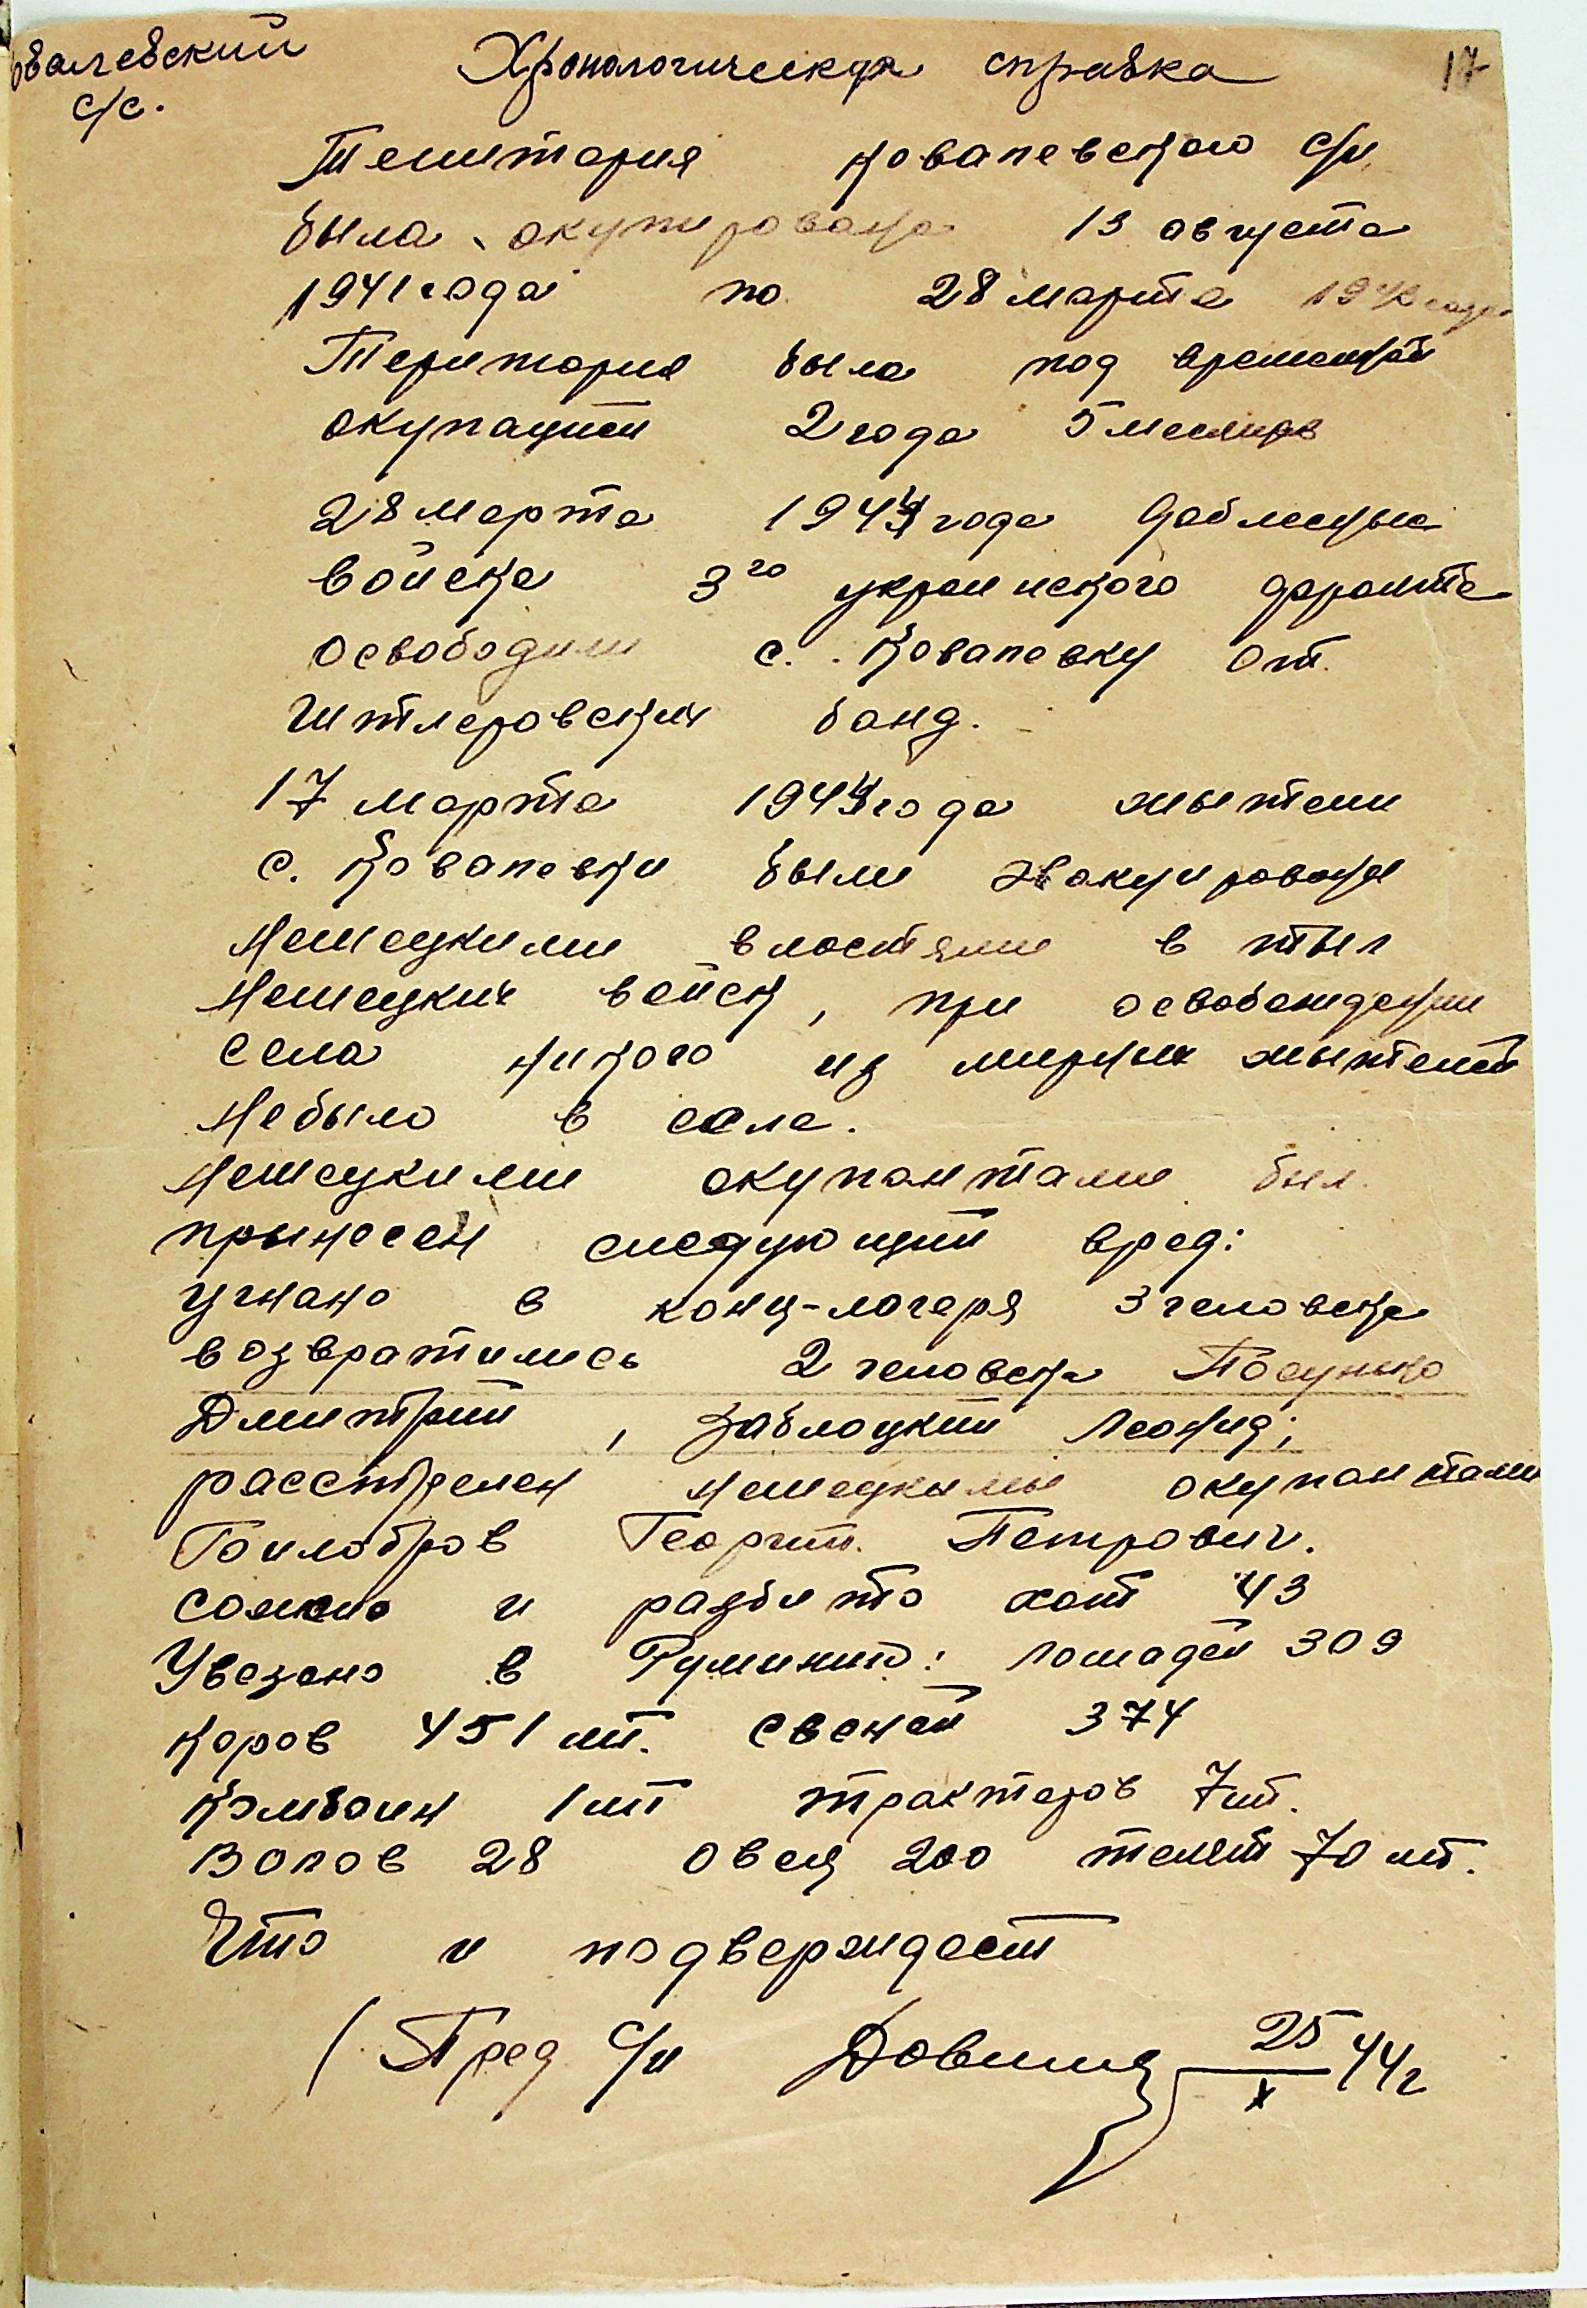 овалевский
с/с.
Хронологическая справка
17
Територия ковалевского с/с
была окупирована 13 августа
1941 года по 28 марта
Територия была под временной
окупацией 2 года 5 месяцов
28 марта 1944 года доблесные
войска 3го украинского фронта
освободили с. Ковалевку от
гитлеровских банд.
17 марта 1944 года жытели
с. Ковалевки были эвакуированы
немецкими властями в тыл
немецких войск, при освобождении
села никого из мирных жытелей
небыло в селе.
Немецкими окупантами был
прынесен следующий вред:
угнано в конц-лагеря 3 человека
возвратились 2 человека
Дмитрий, Заблоцкий Леонид;
расстрелен немецкими окупантами
Георгий Петрович.
сожено и разбито хат 43
Увезено в Румынию: лошадей 309
Коров 451 шт. свеней 374
Комбаин 1 шт тракторов 7 шт.
Волов 28 овец 200 телят 70 шт.
Что и подверждает
Пред с/с 25/X 44 г